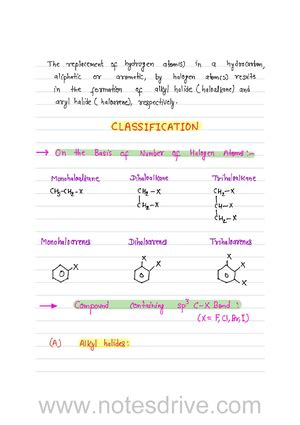 The replacement of hydrogen atom(s) in a hydrocarbon,
aliphatic or aromatic, by halogen atom(s) results
in the formation of alkyl halide (haloalkane) and
aryl halide (haloarene), respectively.
CLASSIFICATION
→ On the Basis of Number of Halogen Atoms:-
Monohaloalkane Dihaloalkane Trihaloalkane
CH3-CH2-X CH2-X CH2-X
CH2-X CH-X
CH2-X
Monohaloarenes Dihaloarenes Trihaloarenes
X X X X X X
→ Compound containing sp3 C-X Bond:
(X= F, Cl, Br, I)
(A) Alkyl halides:
www.notesdrive.com